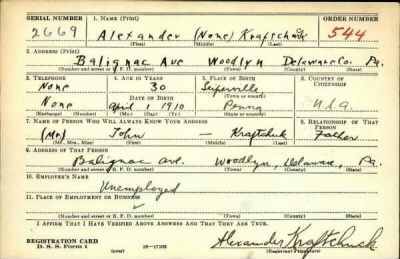 SERIAL NUMBER 1. NAME (Print) ORDER NUMBER
2669 Alexander (None) Kraftchuk 544
(First) (Middle) (Last)
2. ADDRESS (Print)
Balignac Ave Woodlyn Delaware Co. Pa.
(Number and street or R. F. D. number) (Town) (County) (State)
3. TELEPHONE 4. AGE IN YEARS 5. PLACE OF BIRTH 6. COUNTRY OF CITIZENSHIP
None 30
DATE OF BIRTH
None April 1 1910 Penna U.S.A.
(Exchange) (Number) (Mo.) (Day) (Yr.) (State or country)
7. NAME OF PERSON WHO WILL ALWAYS KNOW YOUR ADDRESS 8. RELATIONSHIP OF THAT PERSON
(Mr.) John — Kraftchuk Father
(Mr., Mrs., Miss) (First) (Middle) (Last)
9. ADDRESS OF THAT PERSON
Balignac Ave. Woodlyn, Delaware, Pa.
(Number and street or R. F. D. number) (Town) (County) (State)
10. EMPLOYER'S NAME
Unemployed
11. PLACE OF EMPLOYMENT OR BUSINESS
(Number and street or R. F. D. number) (Town) (County) (State)
I AFFIRM THAT I HAVE VERIFIED ABOVE ANSWERS AND THAT THEY ARE TRUE.
REGISTRATION CARD
D. S. S. Form 1 (over) 16—17105 Alexander Kraftchuck
(Registrant's signature)